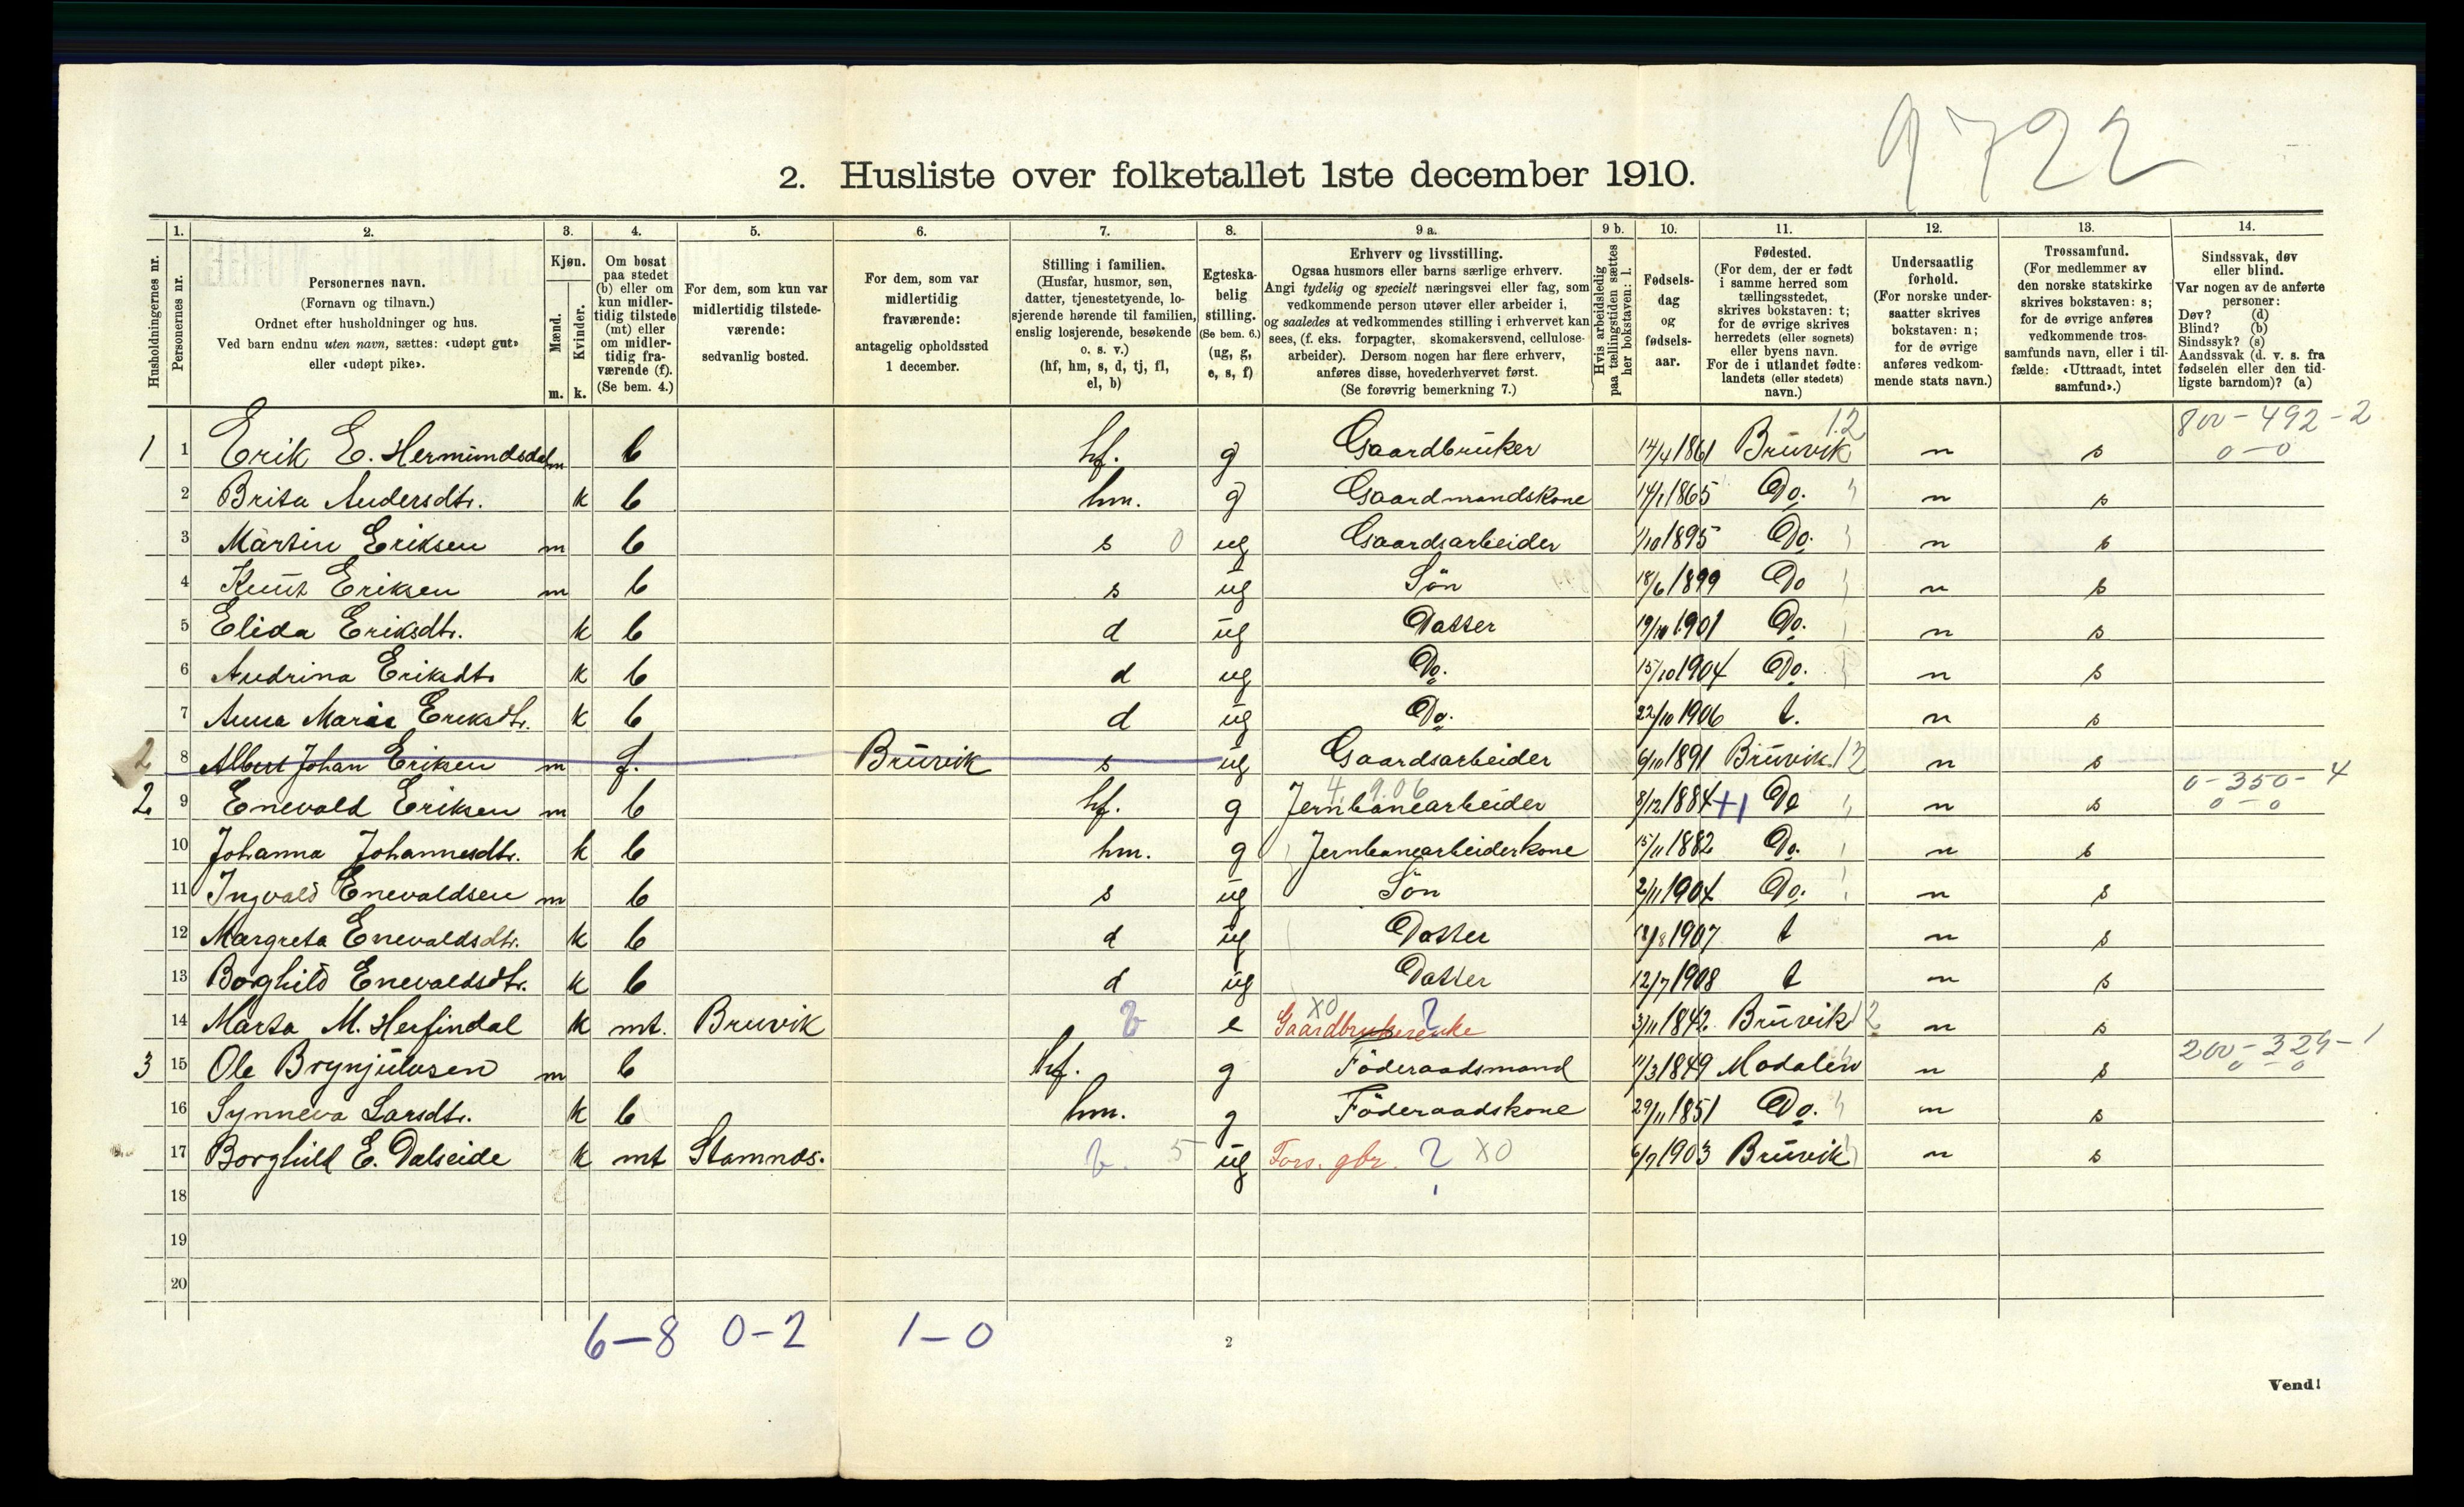 9722
2. Husliste over folketallet 1ste december 1910.
Husholdningernes nr.
1. Personernes nr.
2. Personernes navn. (Fornavn og tilnavn.) Ordnet efter husholdninger og hus. Ved barn endnu uten navn, sættes: «udøpt gut» eller «udøpt pike».
3. Kjøn. Mænd. m. Kvinder. k.
4. Om bosat paa stedet (b) eller om kun midlertidig tilstede (mt) eller om midlertidig fraværende (f). (Se bem. 4.)
5. For dem, som kun var midlertidig tilstedeværende: sedvanlig bosted.
6. For dem, som var midlertidig fraværende: antagelig opholdssted 1 december.
7. Stilling i familien. (Husfar, husmor, søn, datter, tjenestetyende, losjerende hørende til familien, enslig losjerende, besøkende o. s. v.) (hf, hm, s, d, tj, fl, el, b)
8. Egteskabelig stilling. (Se bem. 6.) (ug, g, e, s, f)
9 a. Erhverv og livsstilling. Ogsaa husmors eller barns særlige erhverv. Angi tydelig og specielt næringsvei eller fag, som vedkommende person utøver eller arbeider i, og saaledes at vedkommendes stilling i erhvervet kan sees, (f. eks. forpagter, skomakersvend, cellulosearbeider). Dersom nogen har flere erhverv, anføres disse, hovederhvervet først. (Se forøvrig bemerkning 7.)
9 b. Hvis arbeidsledig paa tællingstiden sættes her bokstaven: l.
10. Fødselsdag og fødselsaar.
11. Fødested. (For dem, der er født i samme herred som tællingsstedet, skrives bokstaven: t; for de øvrige skrives herredets (eller sognets) eller byens navn. For de i utlandet fødte: landets (eller stedets) navn.)
12. Undersaatlig forhold. (For norske undersaatter skrives bokstaven: n; for de øvrige anføres vedkommende stats navn.)
13. Trossamfund. (For medlemmer av den norske statskirke skrives bokstaven: s; for de øvrige anføres vedkommende trossamfunds navn, eller i tilfælde: «Uttraadt, intet samfund».)
14. Sindssvak, døv eller blind. Var nogen av de anførte personer: Døv? (d) Blind? (b) Sindssyk? (s) Aandssvak (d. v. s. fra fødselen eller den tidligste barndom)? (a)
1 1 Erik E. Hermundsdal m b hf. g Gaardbruker 14/4 1861 Bruvik 12 n s 800-492-2 0-0
2 Brita Andersdtr. k b hm. g Gaardmandskone 14/1 1865 Do. n s
3 Martin Eriksen m b s 0 ug Gaardsarbeider 1/10 1895 Do. n s
4 Knut Eriksen m b s ug Sön 18/6 1899 Do n s
5 Elida Eriksdtr. k b d ug Datter 19/10 1901 Do. n s
6 Andrina Eriksdtr k b d ug Do. 15/10 1904 Do. n s
7 Anna Maria Eriksdtr. k b d ug Do. 22/10 1906 t. n s
2 8 Albert Johan Eriksen m f. Bruvik s ug Gaardsarbeider 6/10 1891 Bruvik 12 n s
2 9 Enevald Eriksen m b hf. g Jernbanearbeider 4.9.06 8/12 1884 +1 Do n s 0-350-4 0-0
10 Johanna Johannesdtr. k b hm. g Jernbanearbeiderkone 15/11 1882 Do. n s
11 Ingvald Enevaldsen m b s ug Sön 2/11 1904 Do. n s
12 Margreta Enevaldsdtr. k b d ug Datter 18/8 1907 t n s
13 Borghild Enevaldsdtr. k b d ug Datter 12/7 1908 t n s
14 Marta M. Herfindal k mt. Bruvik b e Gaardbrukerenke X0 ? 3/11 1842 Bruvik 12 n s
3 15 Ole Brynjulvsen m b hf. g Föderaadsmand 11/3 1849 Modalen n s 200-329-1 0-0
16 Synneva Larsdtr. k b hm. g Föderaadskone 29/11 1851 Do. n s
17 Borghild E. Dalseide k mt Stamnes. b. 5 ug Fors. gbr. ? X0 6/7 1903 Bruvik n s
18
19
20
6-8 0-2 1-0
2
Vend!